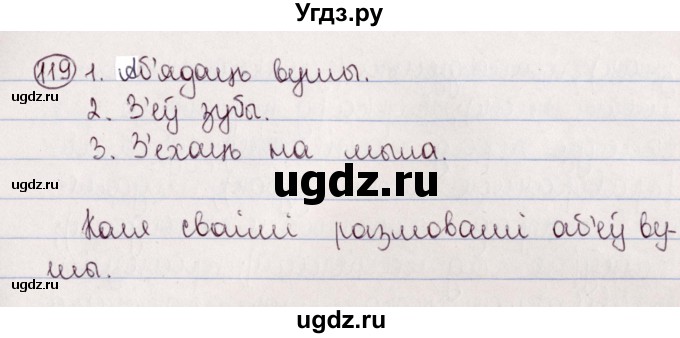 Угдз.ру
119 1. Аб'ядаць вушы.
ugdz.ru
2. З'еў зубы.
3. З'ехаць на мыла.
ugdz.ru
ugdz.ru
Коля сваімі размовамі аб'еў ву-
шы.
ugdz.ru
ugdz.ru
ugdz.ru